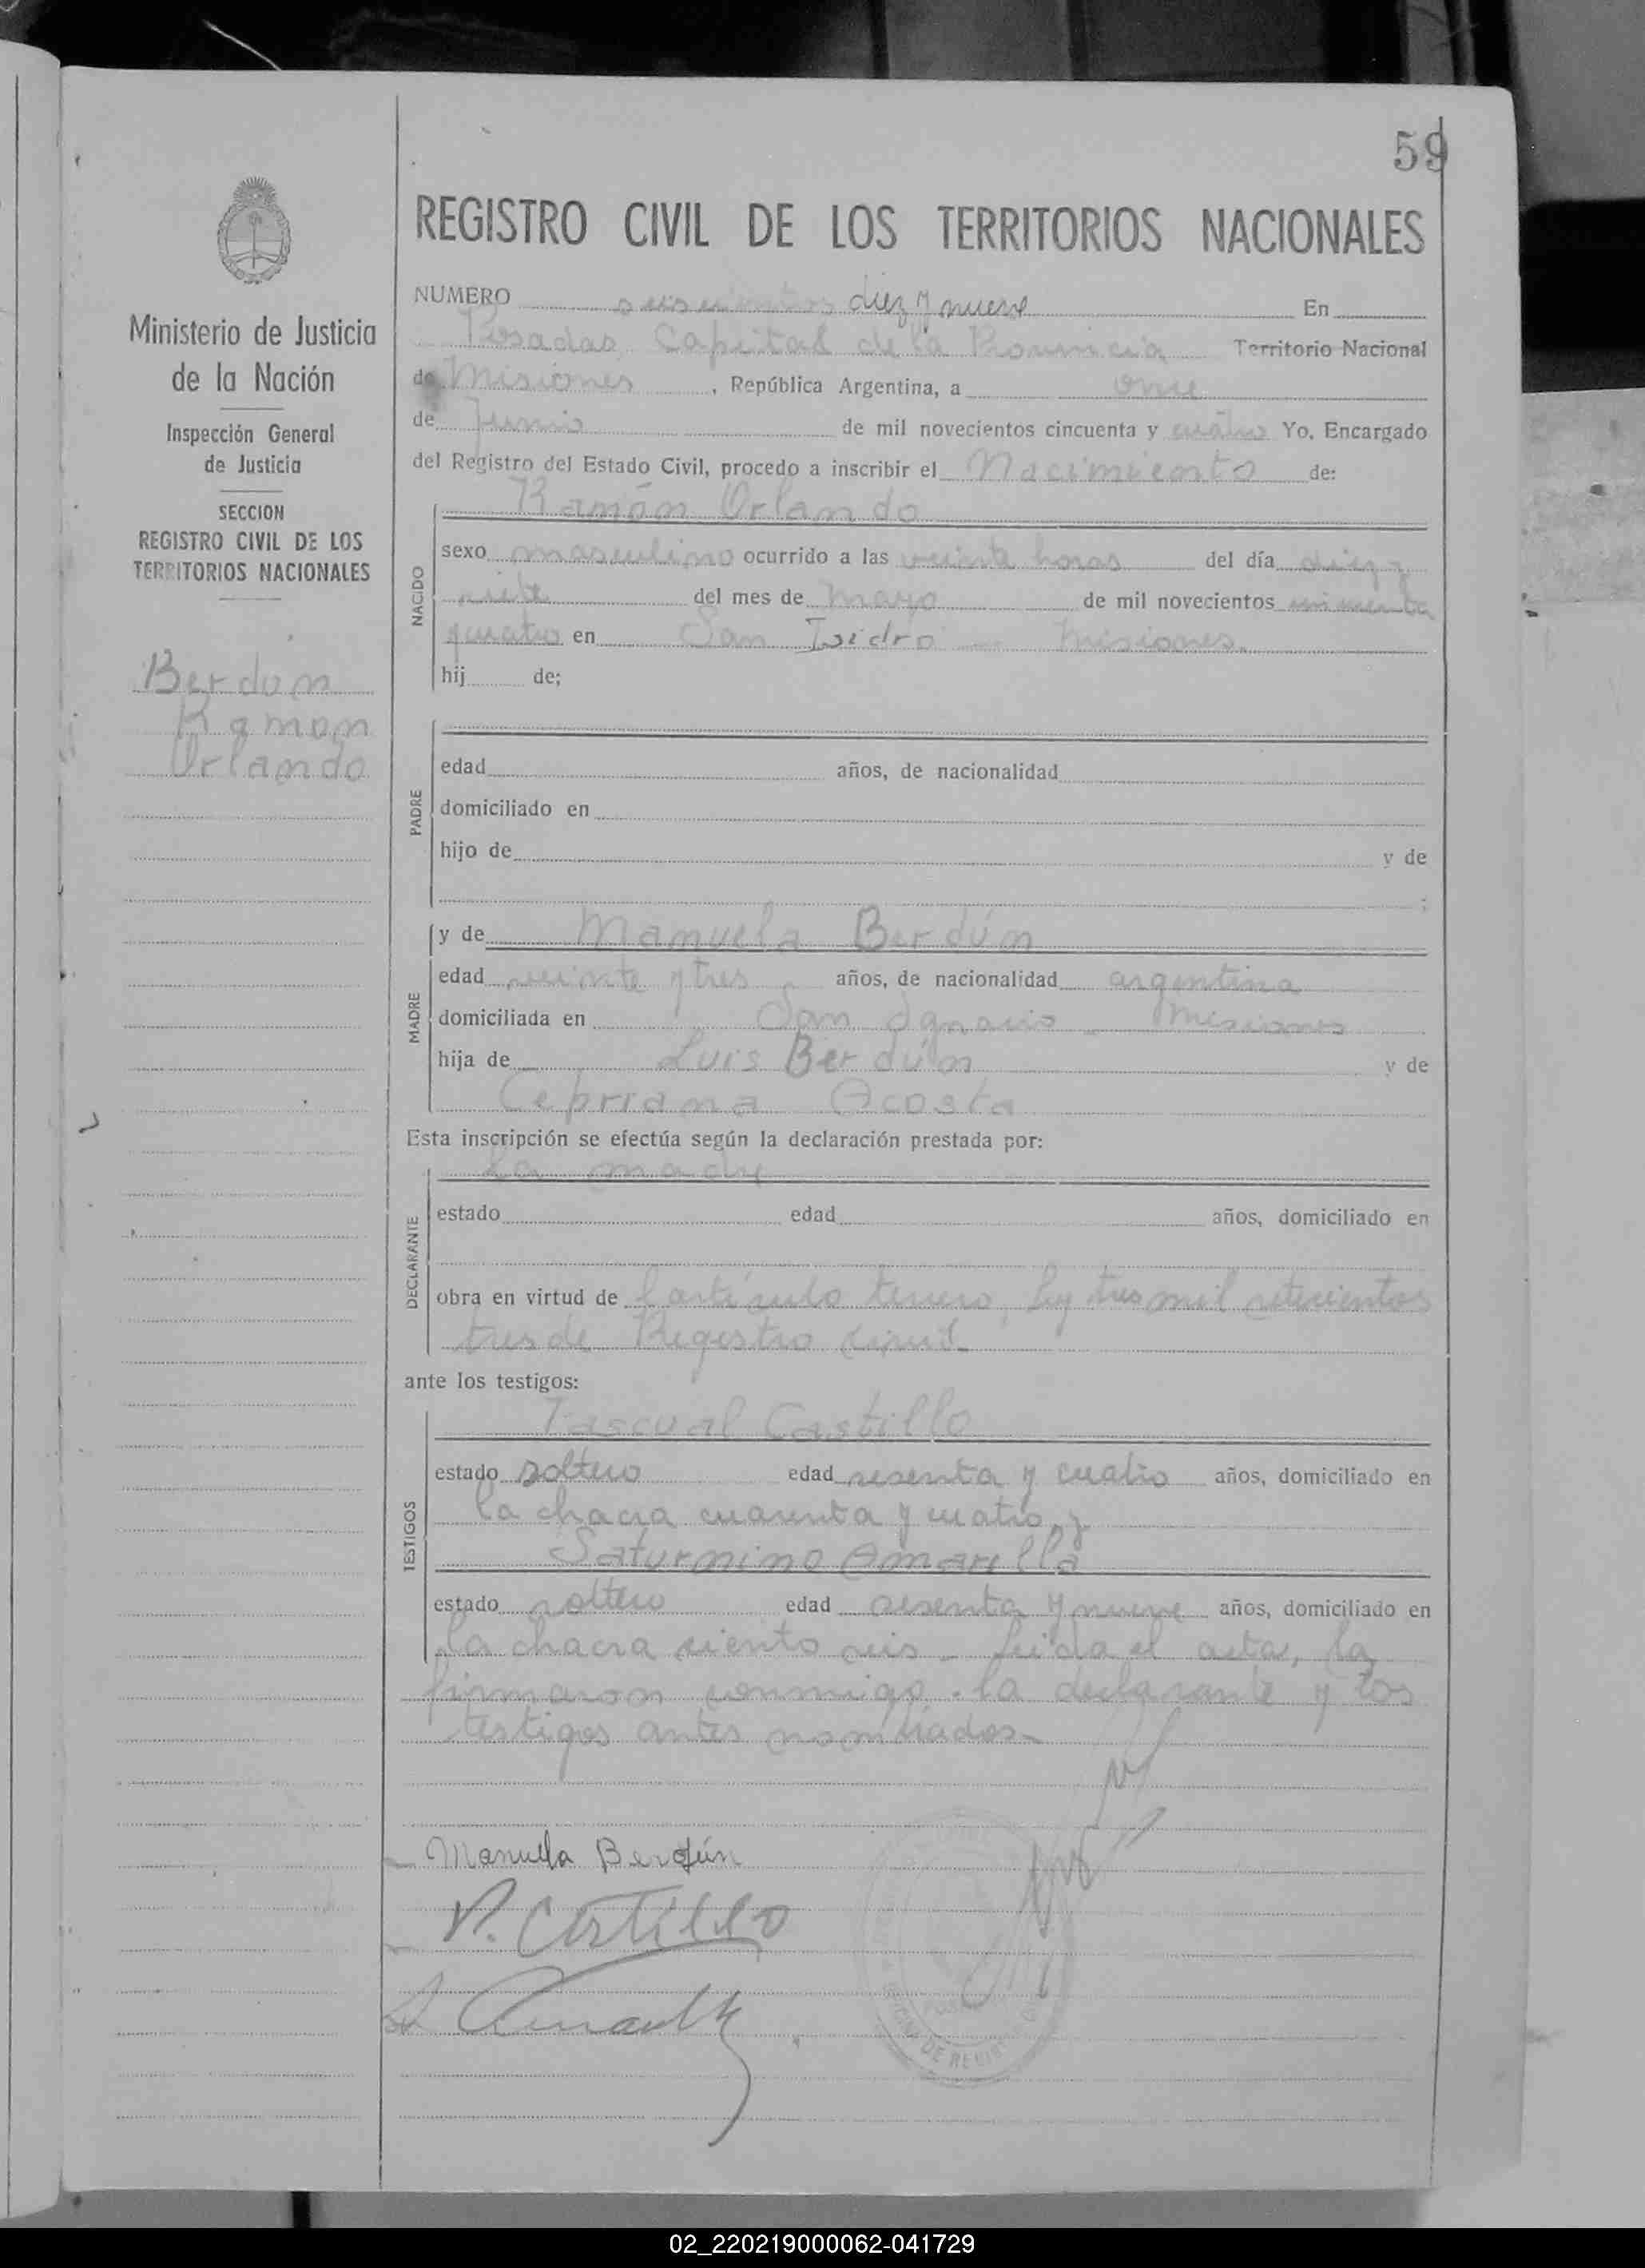 59
REGISTRO CIVIL DE LOS TERRITORIOS NACIONALES
Ministerio de Justicia
de la Nación
Inspección General
de Justicia
SECCION
REGISTRO CIVIL DE LOS
TERRITORIOS NACIONALES
Berdún
Ramón
Orlando
NUMERO seiscientos diez y nueve En
Posadas, Capital de la Provincia Territorio Nacional
de Misiones, República Argentina, a once
de Junio de mil novecientos cincuenta y cuatro Yo, Encargado
del Registro del Estado Civil, procedo a inscribir el Nacimiento de:
NACIDO
Ramón Orlando
sexo masculino ocurrido a las veinte horas del día diez y
siete del mes de mayo de mil novecientos cincuenta
y cuatro en San Isidro - Misiones.
hij de;
PADRE
edad años, de nacionalidad
domiciliado en
hijo de y de
;
MADRE
y de Manuela Berdún
edad veinte y tres años, de nacionalidad argentina
domiciliada en San Ignacio - Misiones
hija de Luis Berdún y de
Cepriana Acosta
Esta inscripción se efectúa según la declaración prestada por:
DECLARANTE
la madre
estado edad años, domiciliado en
obra en virtud de l artículo tercero, ley tres mil setecientos
tres de Registro Civil.
ante los testigos:
TESTIGOS
Pascual Castillo
estado soltero edad sesenta y cuatro años, domiciliado en
la chacra cuarenta y cuatro, y
Saturnino Amarilla
estado soltero edad sesenta y nueve años, domiciliado en
la chacra ciento seis - Leida el acta, la
firmaron conmigo la declarante y los
testigos antes nombrados-
Manuela Berdún
P. Castillo
S Amarilla
02_220219000062-041729